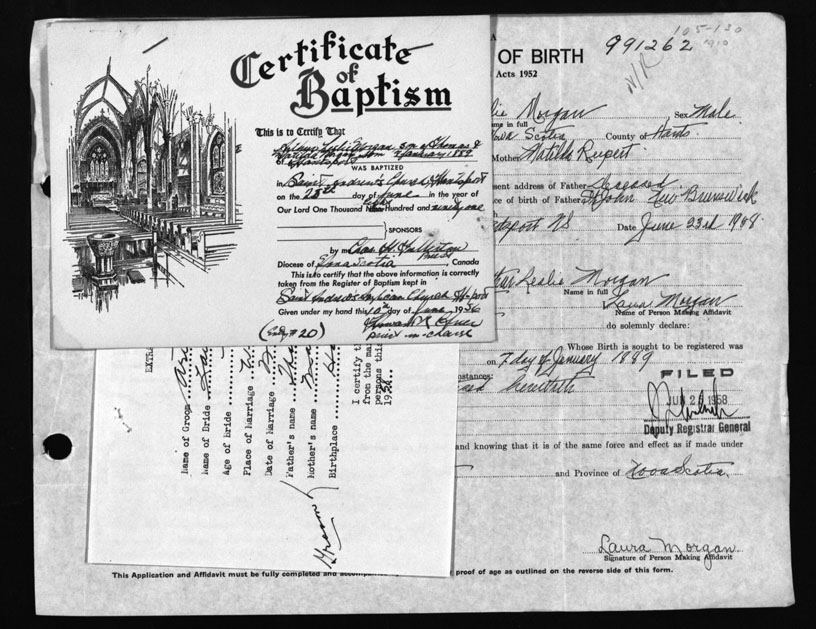 Certificate
of
Baptism
This is to Certify That
Leslie Morgan son of Thomas &
January 1889
of Hantsport
WAS BAPTIZED
in Saint Andrew's Church, Hantsport
on the 25th day of June in the year of
Our Lord One Thousand Hundred and ninety one
SPONSORS
by me
Diocese of Nova Scotia, Canada
This is to certify that the above information is correctly
taken from the Register of Baptism kept in
Saint Andrew's Anglican Church
Given under my hand this day of June 1956
priest-in-charge
OF BIRTH
Acts 1952
991262
105-130
N/R
lie Morgan Sex Male
me in full
ova Scotia County of Hants
Mother Matilda Rupert
sent address of Father Deceased
ce of birth of Father St John New Brunswick
ntsport NS Date June 23rd 1958
Leslie Morgan
Name in full
Laura Morgan
Name of Person Making Affidavit
do solemnly declare:
Whose Birth is sought to be registered was
on 7 day of January 1889
FILED
JUN 2 1958
Deputy Registrar General
and knowing that it is of the same force and effect as if made under
and Province of Nova Scotia
Laura Morgan
Signature of Person Making Affidavit
This Application and Affidavit must be fully completed and proof of age as outlined on the reverse side of this form.
Name of Groom
Name of Bride
Age of Bride
Place of Marriage
Date of Marriage
Father's name
Mother's name
Birthplace
I certify
from the
persons
Groom